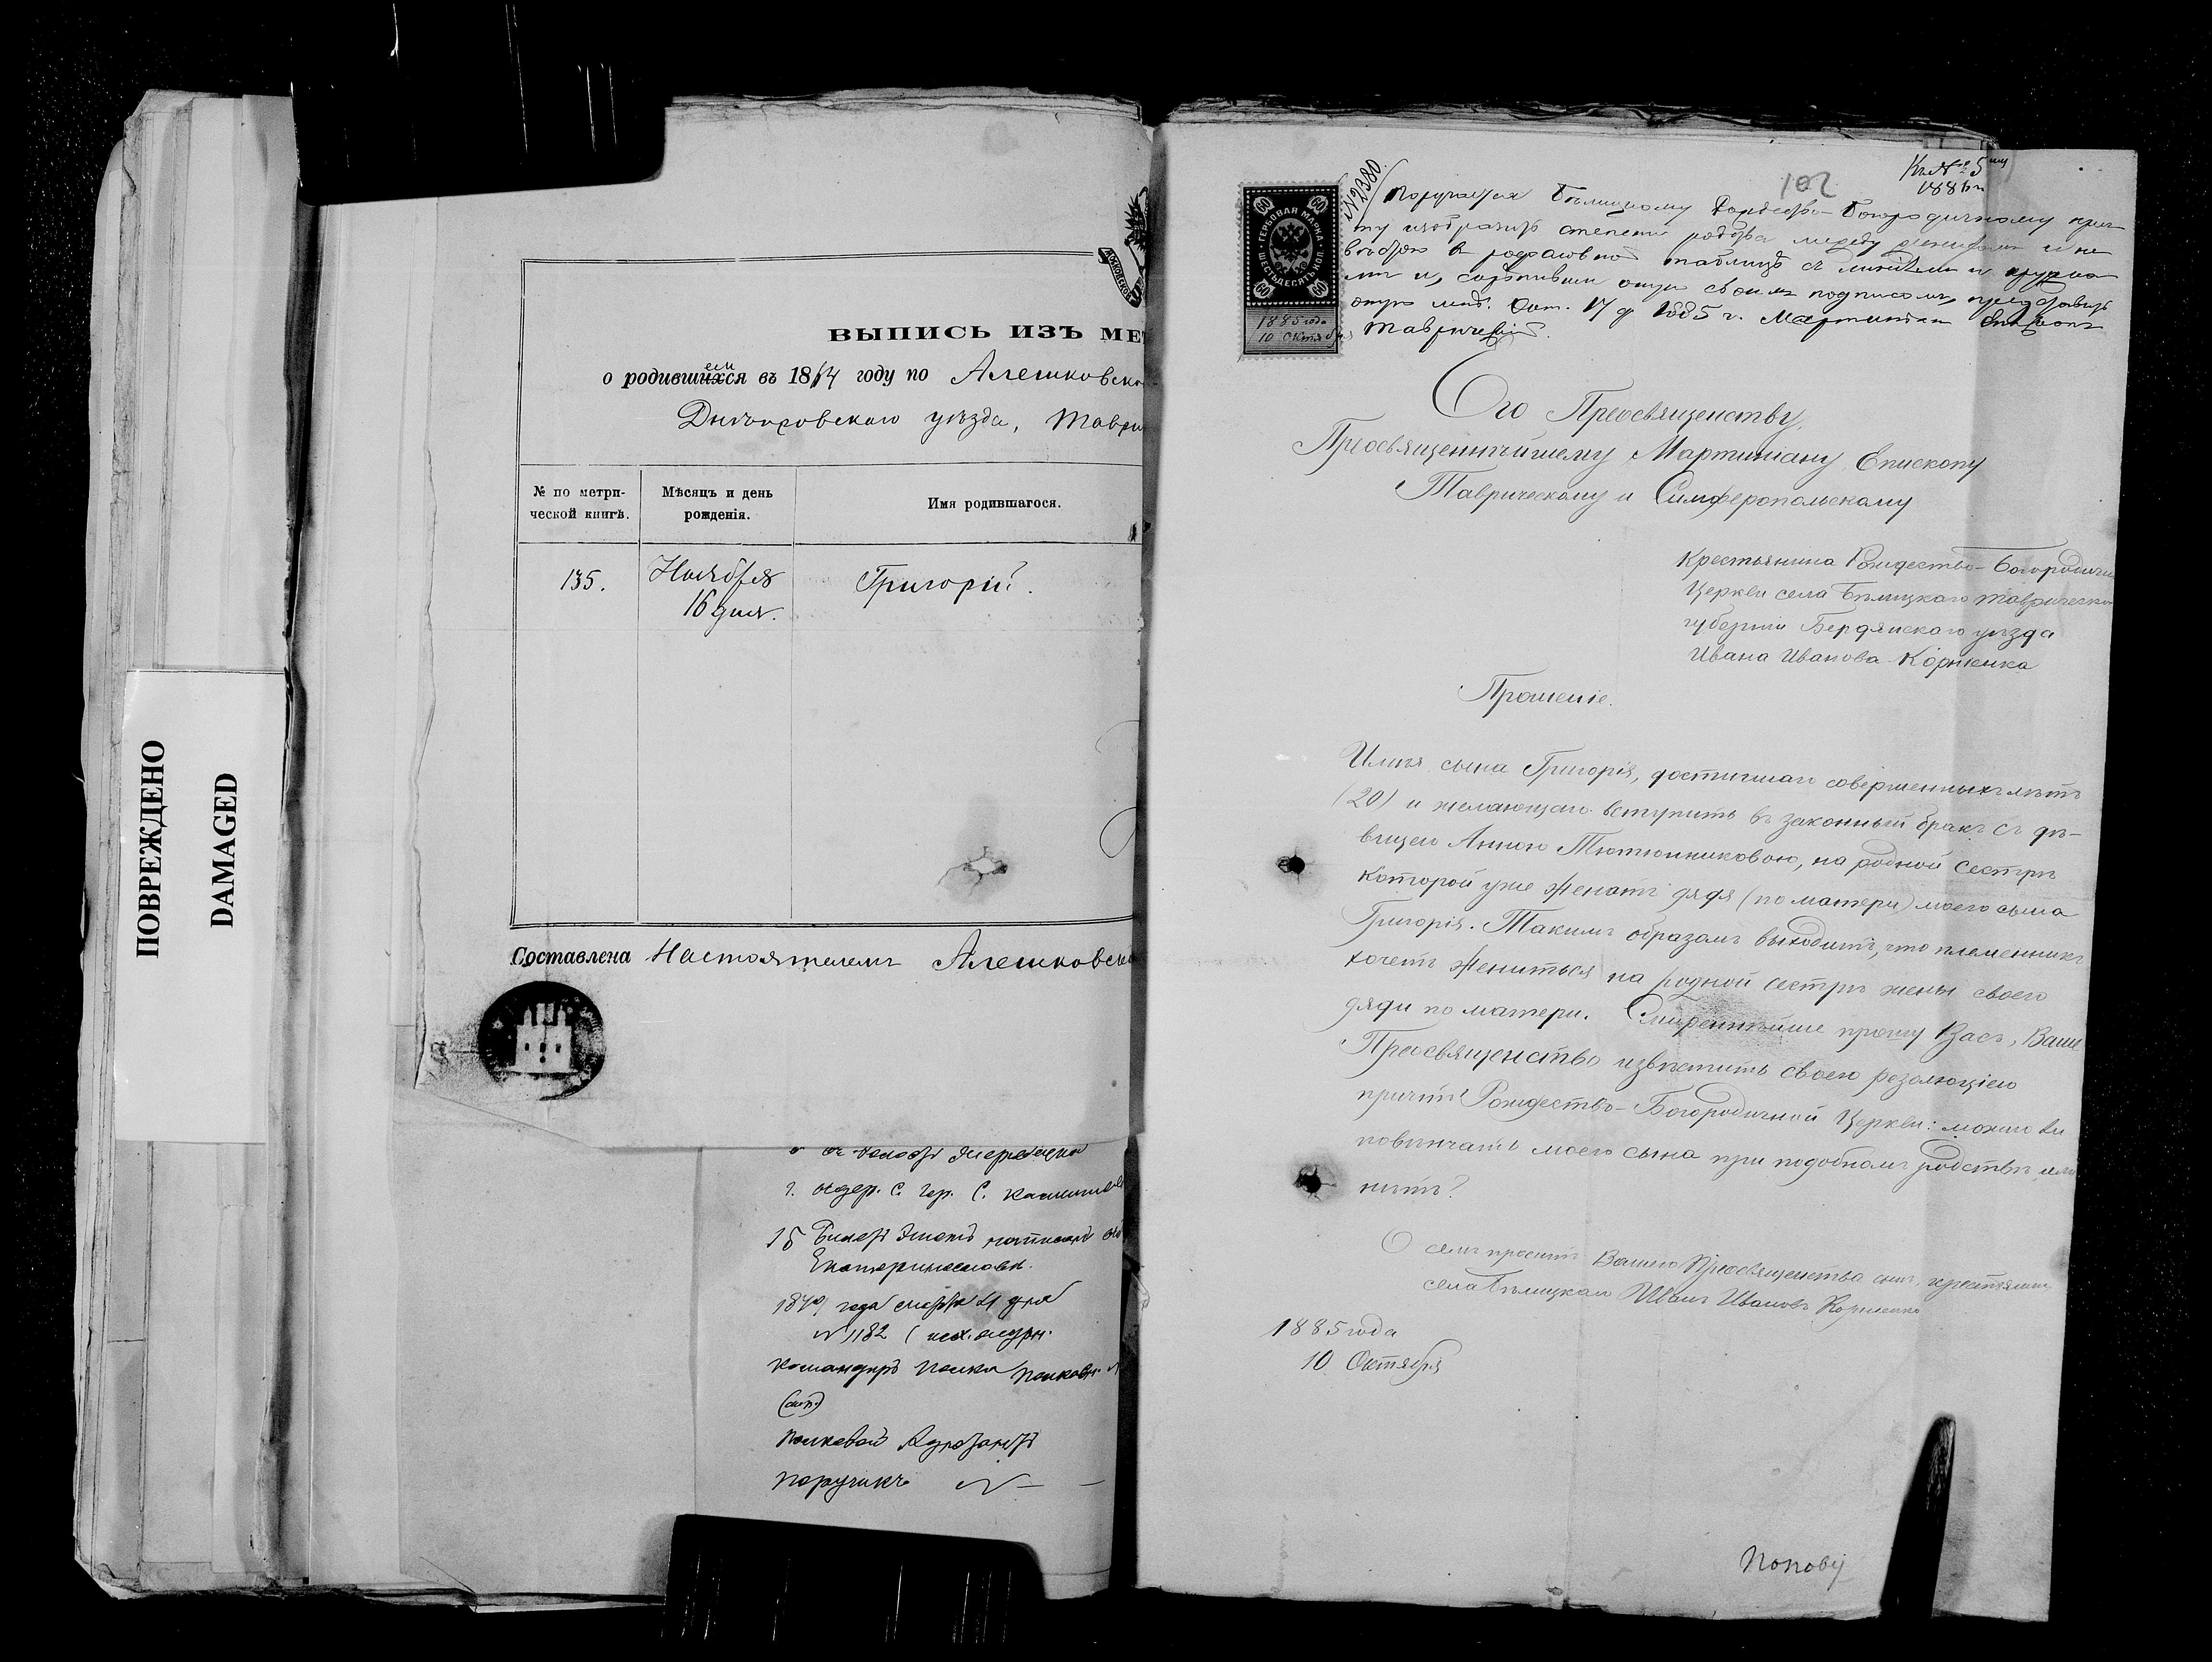 ПОВРЕЖДЕНО
DAMAGED
МОСКОВСКОЕ
ВЫПИСЬ ИЗЪ МЕ
о родившихся въ 1864 году по Алешковско
ем
Днѣпровскаго уѣзда, Таври
№ по метри-
ческой книгѣ.
Мѣсяцъ и день
рожденія.
Имя родившагося.
135.
Ноября
16 дня.
Григорій.
Составлена Настоятелемъ Алешковско
15 Билетъ этотъ
Екатеринославъ.
года марта 21 дня
№ 1182
Командиръ полка полковн.
Полковой Адъютантъ
поручикъ
102
Къ № 5му
1886 г.
№ 2380
ГЕРБОВАЯ МАРКА
ШЕСТЬДЕСЯТЪ КОП.
60 60 60 60
1885 года
10 Октября
Поручается Бѣлицкому Рождество-Богородичному прич-
ту изобразить степени родства между женихомъ и не-
вѣстою въ родословной таблицѣ съ линіями и кружка-
ми и, скрѣпивши оную своимъ подписомъ, представить
оную мнѣ. Окт. 17 д. 1885 г. Мартиніанъ Епископъ
Таврическій.
Его Преосвященству,
Преосвященнѣйшему Мартиніану Епископу
Таврическому и Симферопольскому
Крестьянина Рождество-Богородичн
Церкви села Бѣлицкаго Таврическо
губерніи Бердянскаго уѣзда
Ивана Иванова Корниенка
Прошеніе.
Имѣя сына Григорія, достигшаго совершенныхъ лѣтъ
(20) и желающаго вступить въ законный бракъ съ дѣ-
вицею Анною Тютюнниковою, на родной сестрѣ
которой уже женатъ дядя (по матери) моего сына
Григорія. Такимъ образомъ выходитъ, что племенникъ
хочетъ жениться на родной сестрѣ жены своего
дяди по матери. Смиреннѣйше прошу Васъ, Ваше
Преосвященство извѣстить своею резолюціею
причтъ Рождество-Богородичной Церкви: можно ли
повѣнчать моего сына при подобномъ родствѣ или
нѣтъ?
О семъ проситъ Вашего Преосвященства сынъ, крестьянинъ
села Бѣлицкаго Иванъ Ивановъ Корниенко
1885 года
10 Октября
Попову